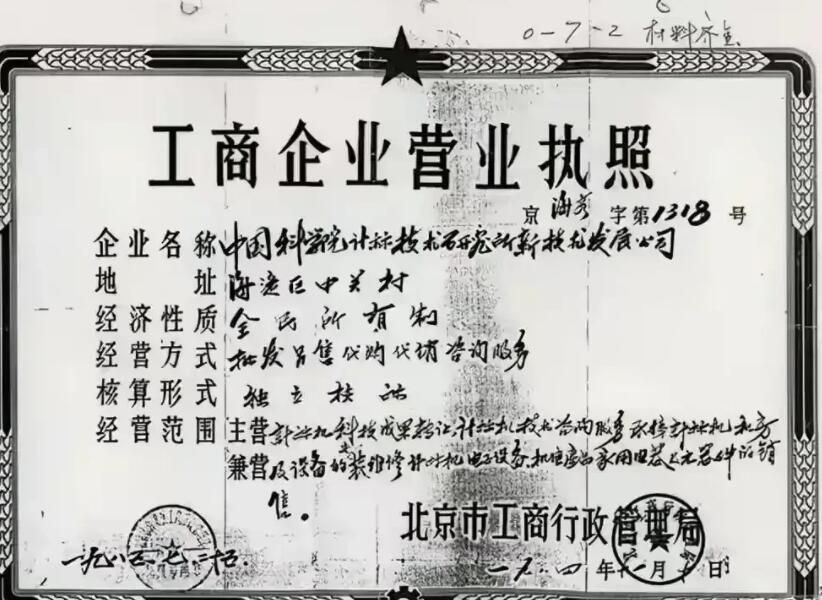 0-7-2 材料齐全
工商企业营业执照
京 海 字第1318号
企业名称 中国科学院计标技术研究所新技术发展公司
地址 海淀区中关村
经济性质 全民所有制
经营方式 批发另售代购代销咨询服务
核算形式 独立核祘
经营范围 主营 计祘机科技成果转让,计祘机技术咨询服务 承接计祘机机房
兼营 及设备的装维修 计祘机电子设备 家用电器及元器件的销
售。
北京市工商行政管理局
一九八五.七.二十五.
一九 四年十一月 日